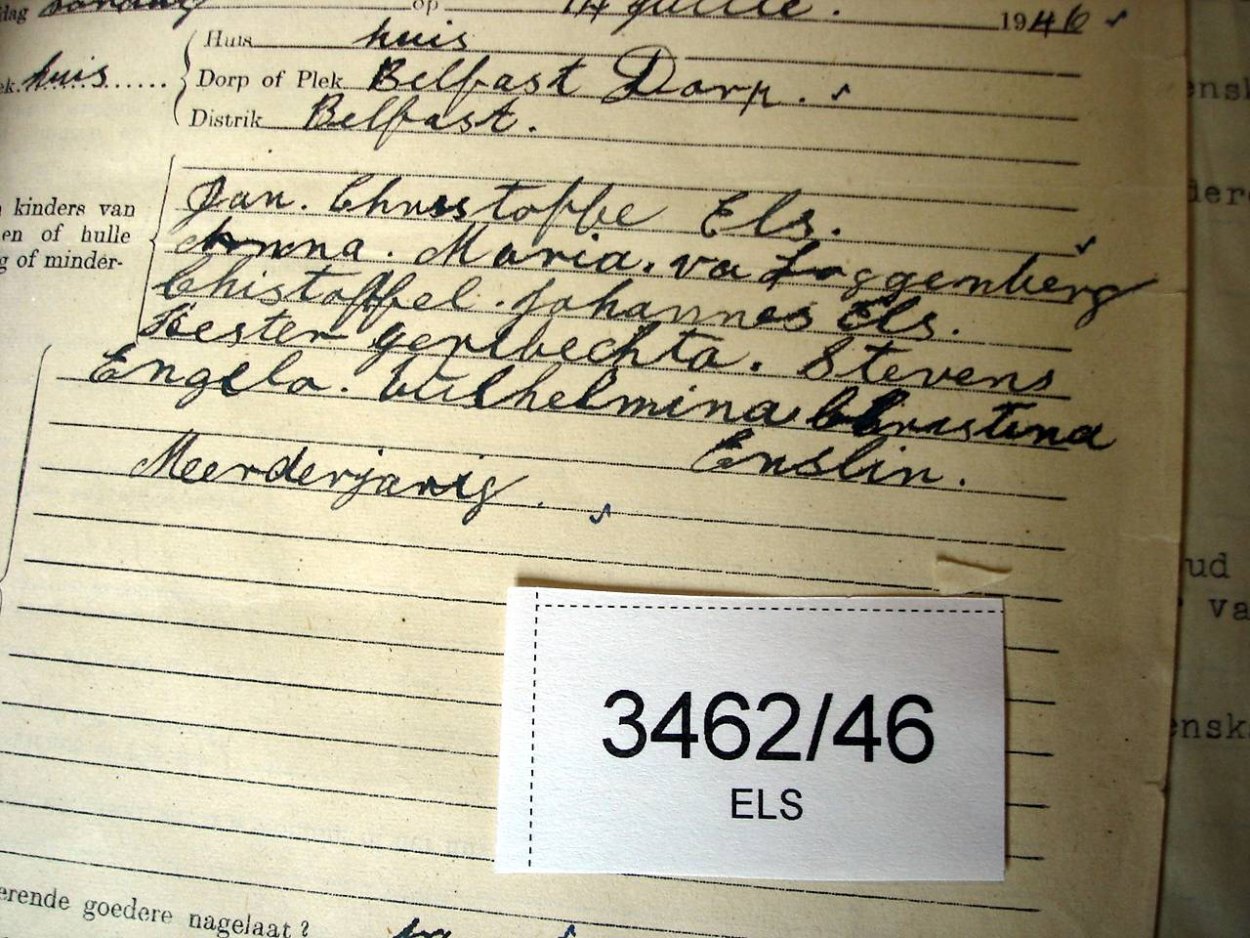 dag Sondag op 14 Julie. 1946
Huis huis
huis Dorp of Plek Belfast Dorp.
Distrik Belfast.
kinders van Jan. Christoffe Els.
en of hulle Anna. Maria. va Loggenberg
g of minder- Chistoffel. Johannes Els.
Hester gertbechta. Stevens
Engela. Wilhelmina Christina
Enslin.
Meerderjarig.
3462/46
ELS
erende goedere nagelaat?
ensk
der
ud
va
ensk